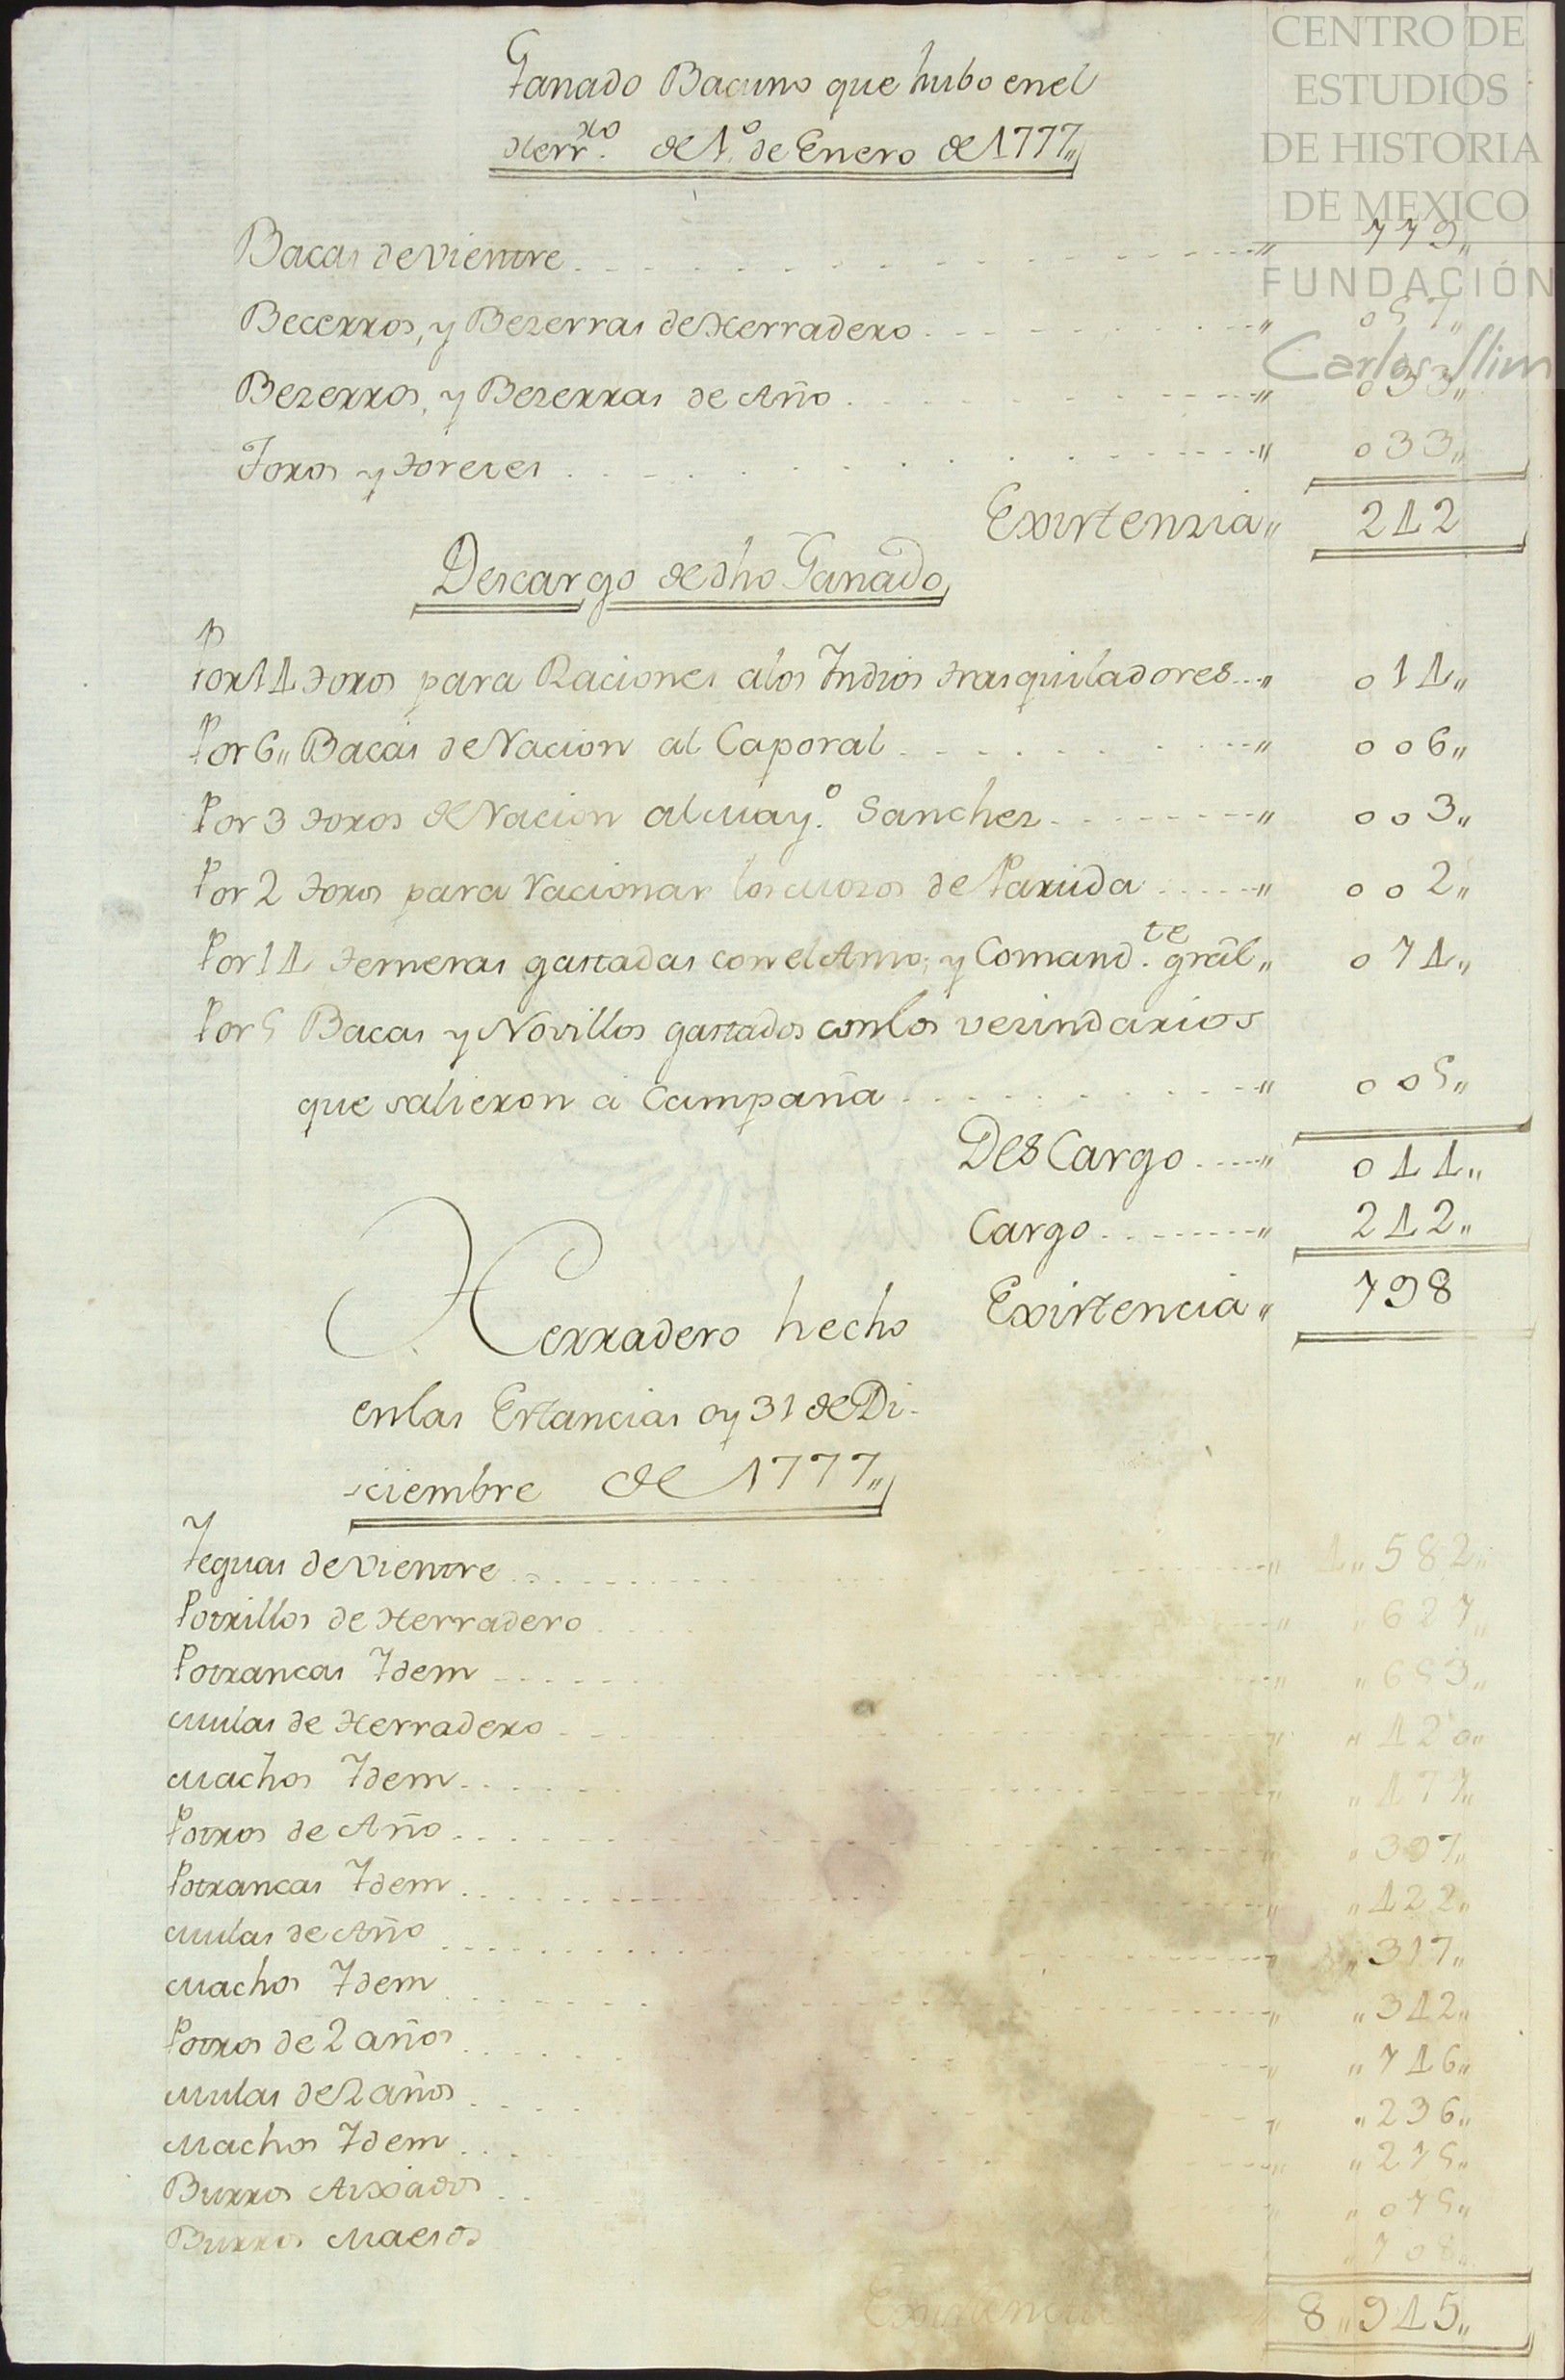 Ganado Bacuno que hubo en el
Herr.ro de 1.º de Enero de 1777,,
CENTRO DE
ESTUDIOS
DE HISTORIA
DE MEXICO
FUNDACIÓN
Carlos Slim
Bacas de vientre ,, 119,,
Becerros, y Bezerras de Herradero ,, 057,,
Bezerros, y Bezerras de Año ,, 033,,
Toros y Toreses ,, 033,,
Existenzia,, 242
Descargo de dho Ganado,
Por 14 toros para Raciones a los Indios trasquiladores ,, 014,,
Por 6,, Bacas de Racion al Caporal ,, 006,,
Por 3 toros de Racion al May.º Sanchez ,, 003,,
Por 2 toros para racionar los Mozos de Partida ,, 002,,
Por 14 terneras gastadas con el Amo, y Comand.te grâl ,, 014,,
Por 5 Bacas y Novillos gastados con los vezindarios
que salieron á Campaña ,, 005,,
DesCargo ,, 044,,
Cargo ,, 242,,
Existencia ,, 198
Herradero hecho
en las Estancias oy 31 de Di-
ciembre de 1777,,
Yeguas de vientre ,, 4,,582,,
Potrillos de Herradero ,, ,,621,,
Potrancas Idem ,, ,,653,,
Mulas de Herradero ,, ,,420,,
Machos Idem ,, ,,471,,
Potros de Año ,, ,,397,,
Potrancas Idem ,, ,,422,,
Mulas de Año ,, ,,317,,
Machos Idem ,, ,,342,,
Potros de 2 años ,, ,,146,,
Mulas de 2 años ,, ,,236,,
Machos Idem ,, ,,215,,
Burros Aixados ,, ,,015,,
Burros Maesos ,,108,,
Existencia ,, 8,,945,,